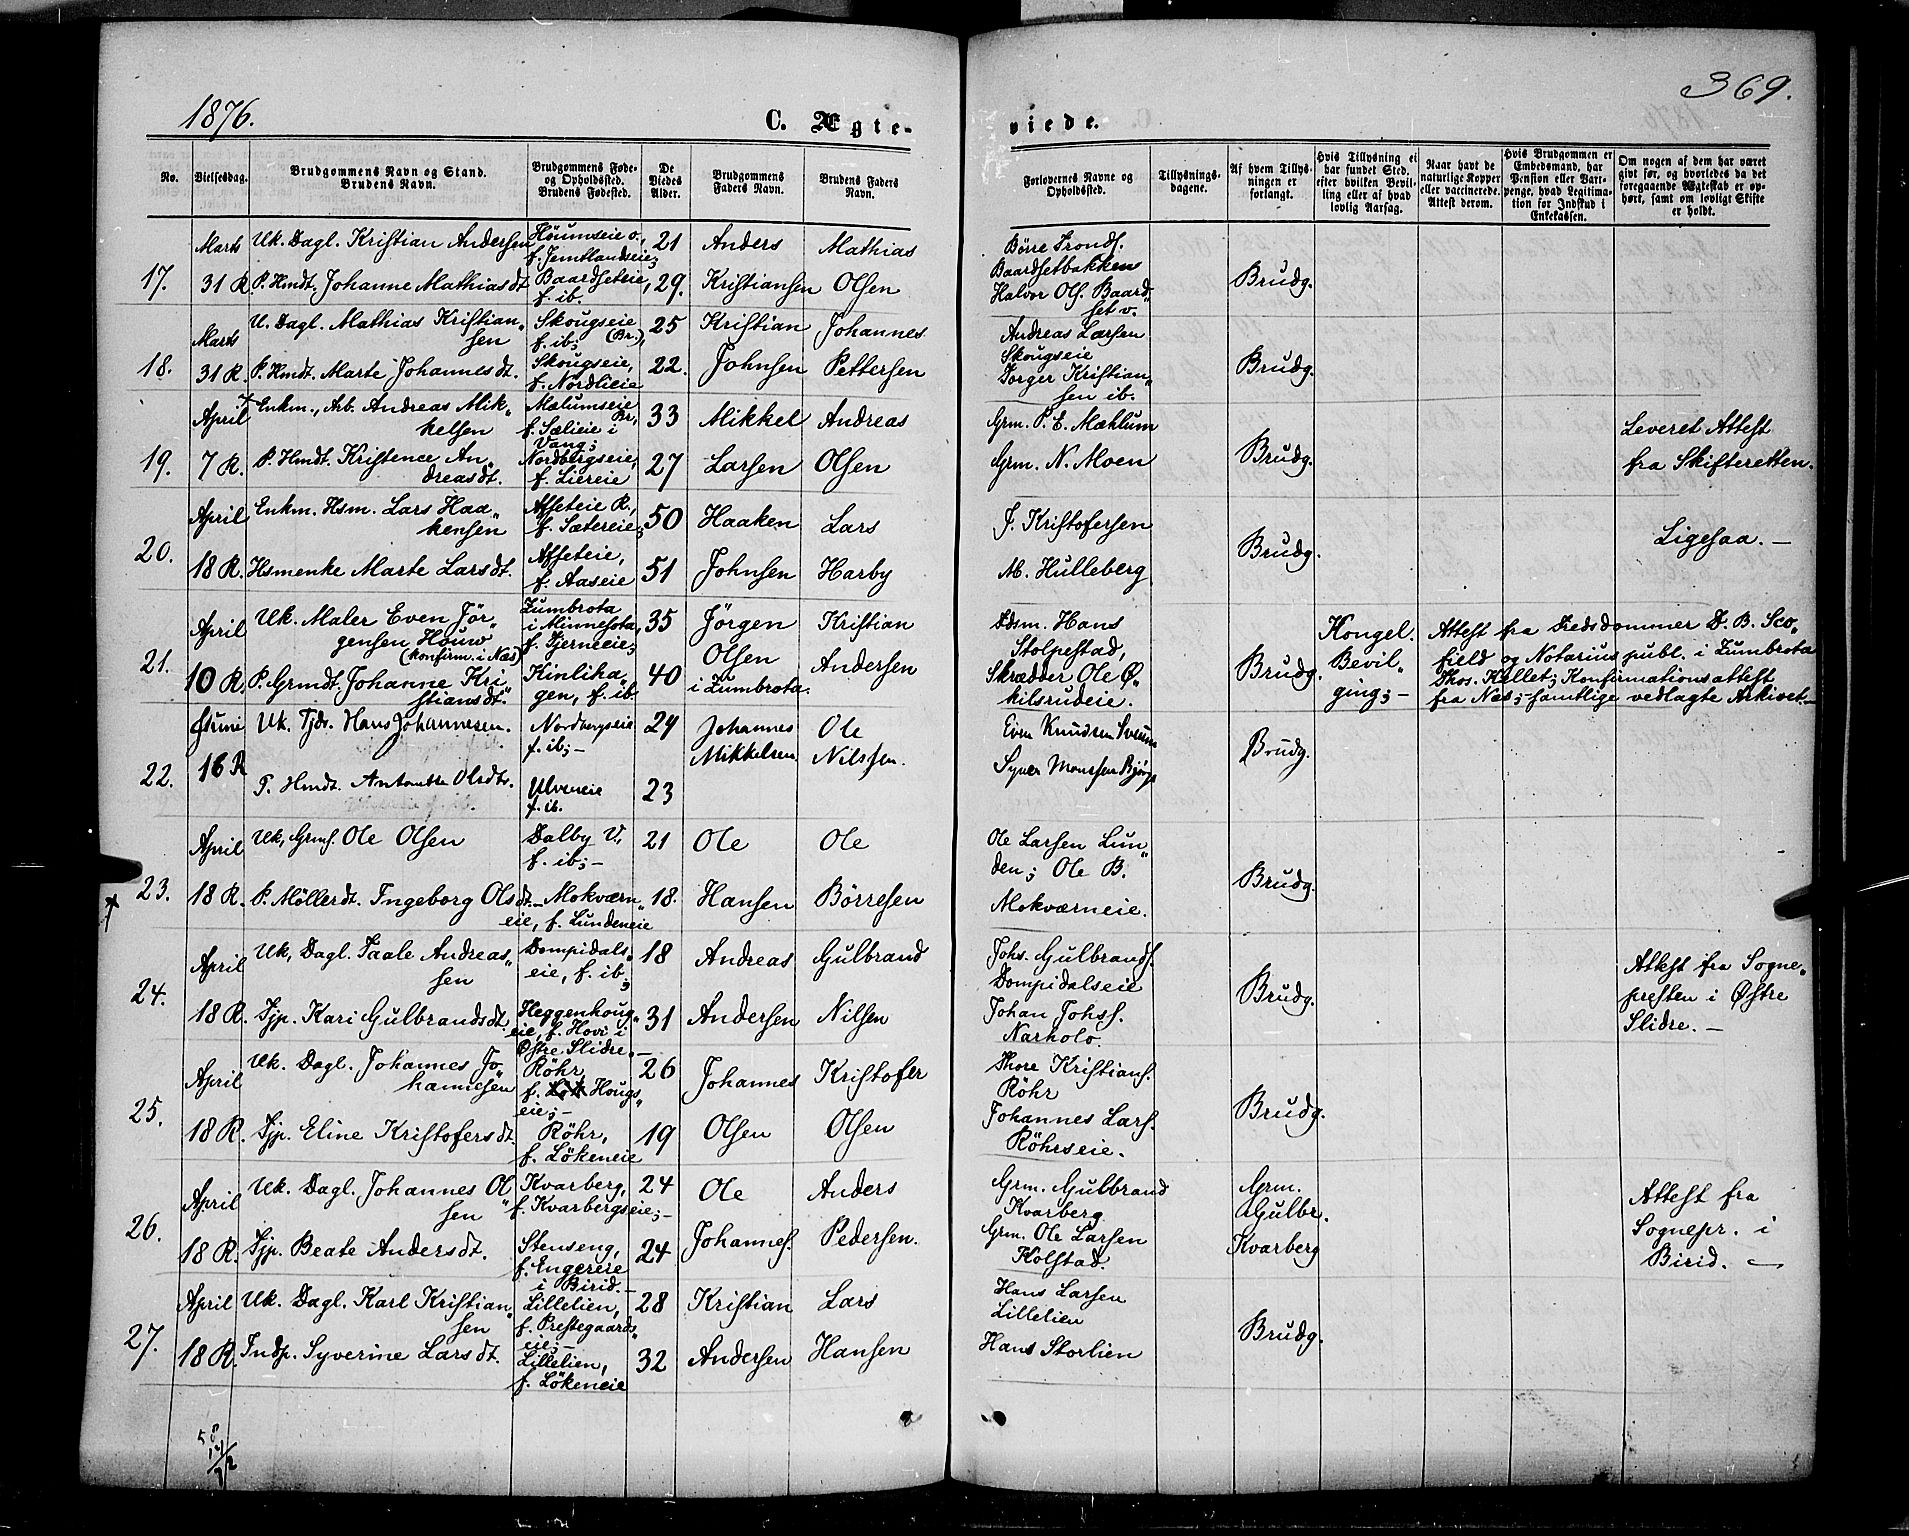 1876.
C. Ægte-
viede.
369.
No.
Vielsesdag.
Brudgommens Navn og Stand.
Brudens Navn.
Brudgommens Føde-
og Opholdssted.
Brudens Fødested.
De
Viedes
Alder.
Brudgommens
Faders Navn.
Brudens Faders
Navn.
Forlovernes Navne og
Opholdssted.
Tillysnings-
dagene.
Af hvem Tillys-
ningen er
forlangt.
Hvis Tillysning ei
har fundet Sted,
efter hvilken Bevil-
ling eller af hvad
lovlig Aarsag.
Naar havt de
naturlige Kopper
eller vaccinerede.
Attest derom.
Hvis Brudgommen er
Embedsmand, har
Pension eller Vart-
penge, hvad Legitima-
tion for Indskud i
Enkekassen.
Om nogen af dem har været
givt før, og hvorledes da det
foregaaende Ægteskab er op-
hørt, samt om lovligt Skifte
er holdt.
17.
Marts
31 R.
Uk. Dagl. Kristian Andersen
P. Hmdt. Johanne Mathiasdt.
Höiumseie o.,
f. Jemtlandseie;
Baardseteie,
f. ib.
21
29.
Anders
Kristiansen
Mathias
Olsen
Börre Tronds.
Baardsetbakken
Halvor Ols. Baard„
set v.
Brudg.
18.
Marts
31 R.
U. Dagl. Mathias Kristian„
sen
P. Hmdt. Marte Johannesdt.
Skougseie
f. ib; (Br.),
Skougseie,
f. Nordlieie
25
22.
Kristian
Johnsen
Johannes
Pettersen
Andreas Larsen
Skougseie
Torger Kristian„
sen ib.
Brudg.
19.
April
7 R.
Enkm., Arb. Andreas Mik„
kelsen
P. Hmdt. Kristence An„
dreasdt.
Mælumseie
Br,
f. Sælieie i
Vang;
Nordbergseie,
f. Liereie
33
27
Mikkel
Larsen
Andreas
Olsen
Grm. P. E. Mæhlum
Grm. N. Moen
Brudg.
Leveret Attest
fra Skifteretten.
20.
April
18 R.
Enkm. Hsm. Lars Haa„
kensen
Hsmenke Marte Larsdt.
Asseteie R.,
f. Sætereie;
Asseteie,
f. Aaseie
50
51
Haaken
Johnsen
Lars
Harby
J. Kristofersen
M. Hulleberg
Brudg.
Ligesaa. —
21.
April
10 R.
Uk. Maler Even Jör„
gensen Houw
(konfirm. i Næs)
P. Grmdt. Johanne Kri„
stiansdt.
Zumbrota
i Minnesota,
f. Tjerneeie;
Kinlikа„
gen, f. ib.
35
40
Jörgen
Olsen
i Zumbrota.
Kristian
Andersen
Ldsm. Hans
Stolpestad,
Skrædder Ole Ø„
kilsrudeie.
Brudg.
Kongel.
Bevil„
ging; —
Attest fra Fredsdommer D. B. Sco„
field og Notarius publ. i Zumbrota
Thos. Kellet; Konfirmationsattest
fra Næs; samtlige vedlagte Arkivet. —
22.
Juni
16 R
Uk. Tjdr. Hans Johannesen.
P. Hmdt. Antonette Olsdtr.
Nordbergseie
f. ib; —
Ulveneie
f. ib.
24
23
Johannes
Mikkelsen
Ole
Nilssen.
Even Knudsen
Syver Monssen
Brudg.
23.
April
18 R.
Uk, Grms. Ole Olsen
P. Möllerdt. Ingeborg Olsdt.
Dalby V.,
f. ib; —
Mokværn„
eie, f. Lundeneie
21
18.
Ole
Hansen
Ole
Börresen
Ole Larsen Lun„
den; Ole B.
Mokværneie.
Brudg.
24.
April
18 R.
Uk, Dagl. Paale Andreas„
sen
Pjp. Kari Gulbrandsdt.
Dompidals„
eie, f. ib;
Heggenhoug„
eie, f. Hovi i
Östre Slidre. —
18
31
Andreas
Andersen
Gulbrand
Nilsen
Johs. Gulbrands.
Dompidalseie
Johan Johs.
Narholo.
Brudg.
Attest fra Sogne„
presten i Østre
Slidre. —
25.
April
18 R.
Uk. Dagl. Johannes Jo„
hannesen
Pjp. Eline Kristofersdt.
Röhr,
f. Hougs„
eie; —
Röhr,
f. Lökeneie
26
19
Johannes
Olsen
Kristofer
Olsen
Thore Kristians.
Röhr
Johannes Lars.
Röhrseie.
Brudg.
26.
April
18 R.
Uk. Dagl. Johannes Ol„
sen
Pjp. Beate Andersdt.
Kvarberg,
f. Kvarbergseie; —
Stenseng,
f. Engereie
i Birid. —
24
24
Ole
Johannes.
Anders
Pedersen.
Grm. Gulbrand
Kvarberg
Grm. Ole Larsen
Kolstad.
Grm.
Gulbr.
Kvarberg
Attest fra
Sognepr. i
Birid. —
27.
April
18 R.
Uk. Dagl. Karl Kristian„
sen
Indp. Syverine Larsdt.
Lillelien,
f. Prestegaards„
eie; —
Lillelien,
f. Lökeneie
28
32
Kristian
Andersen
Lars
Hansen
Hans Larsen
Lillelien
Hans Storlien
Brudg.